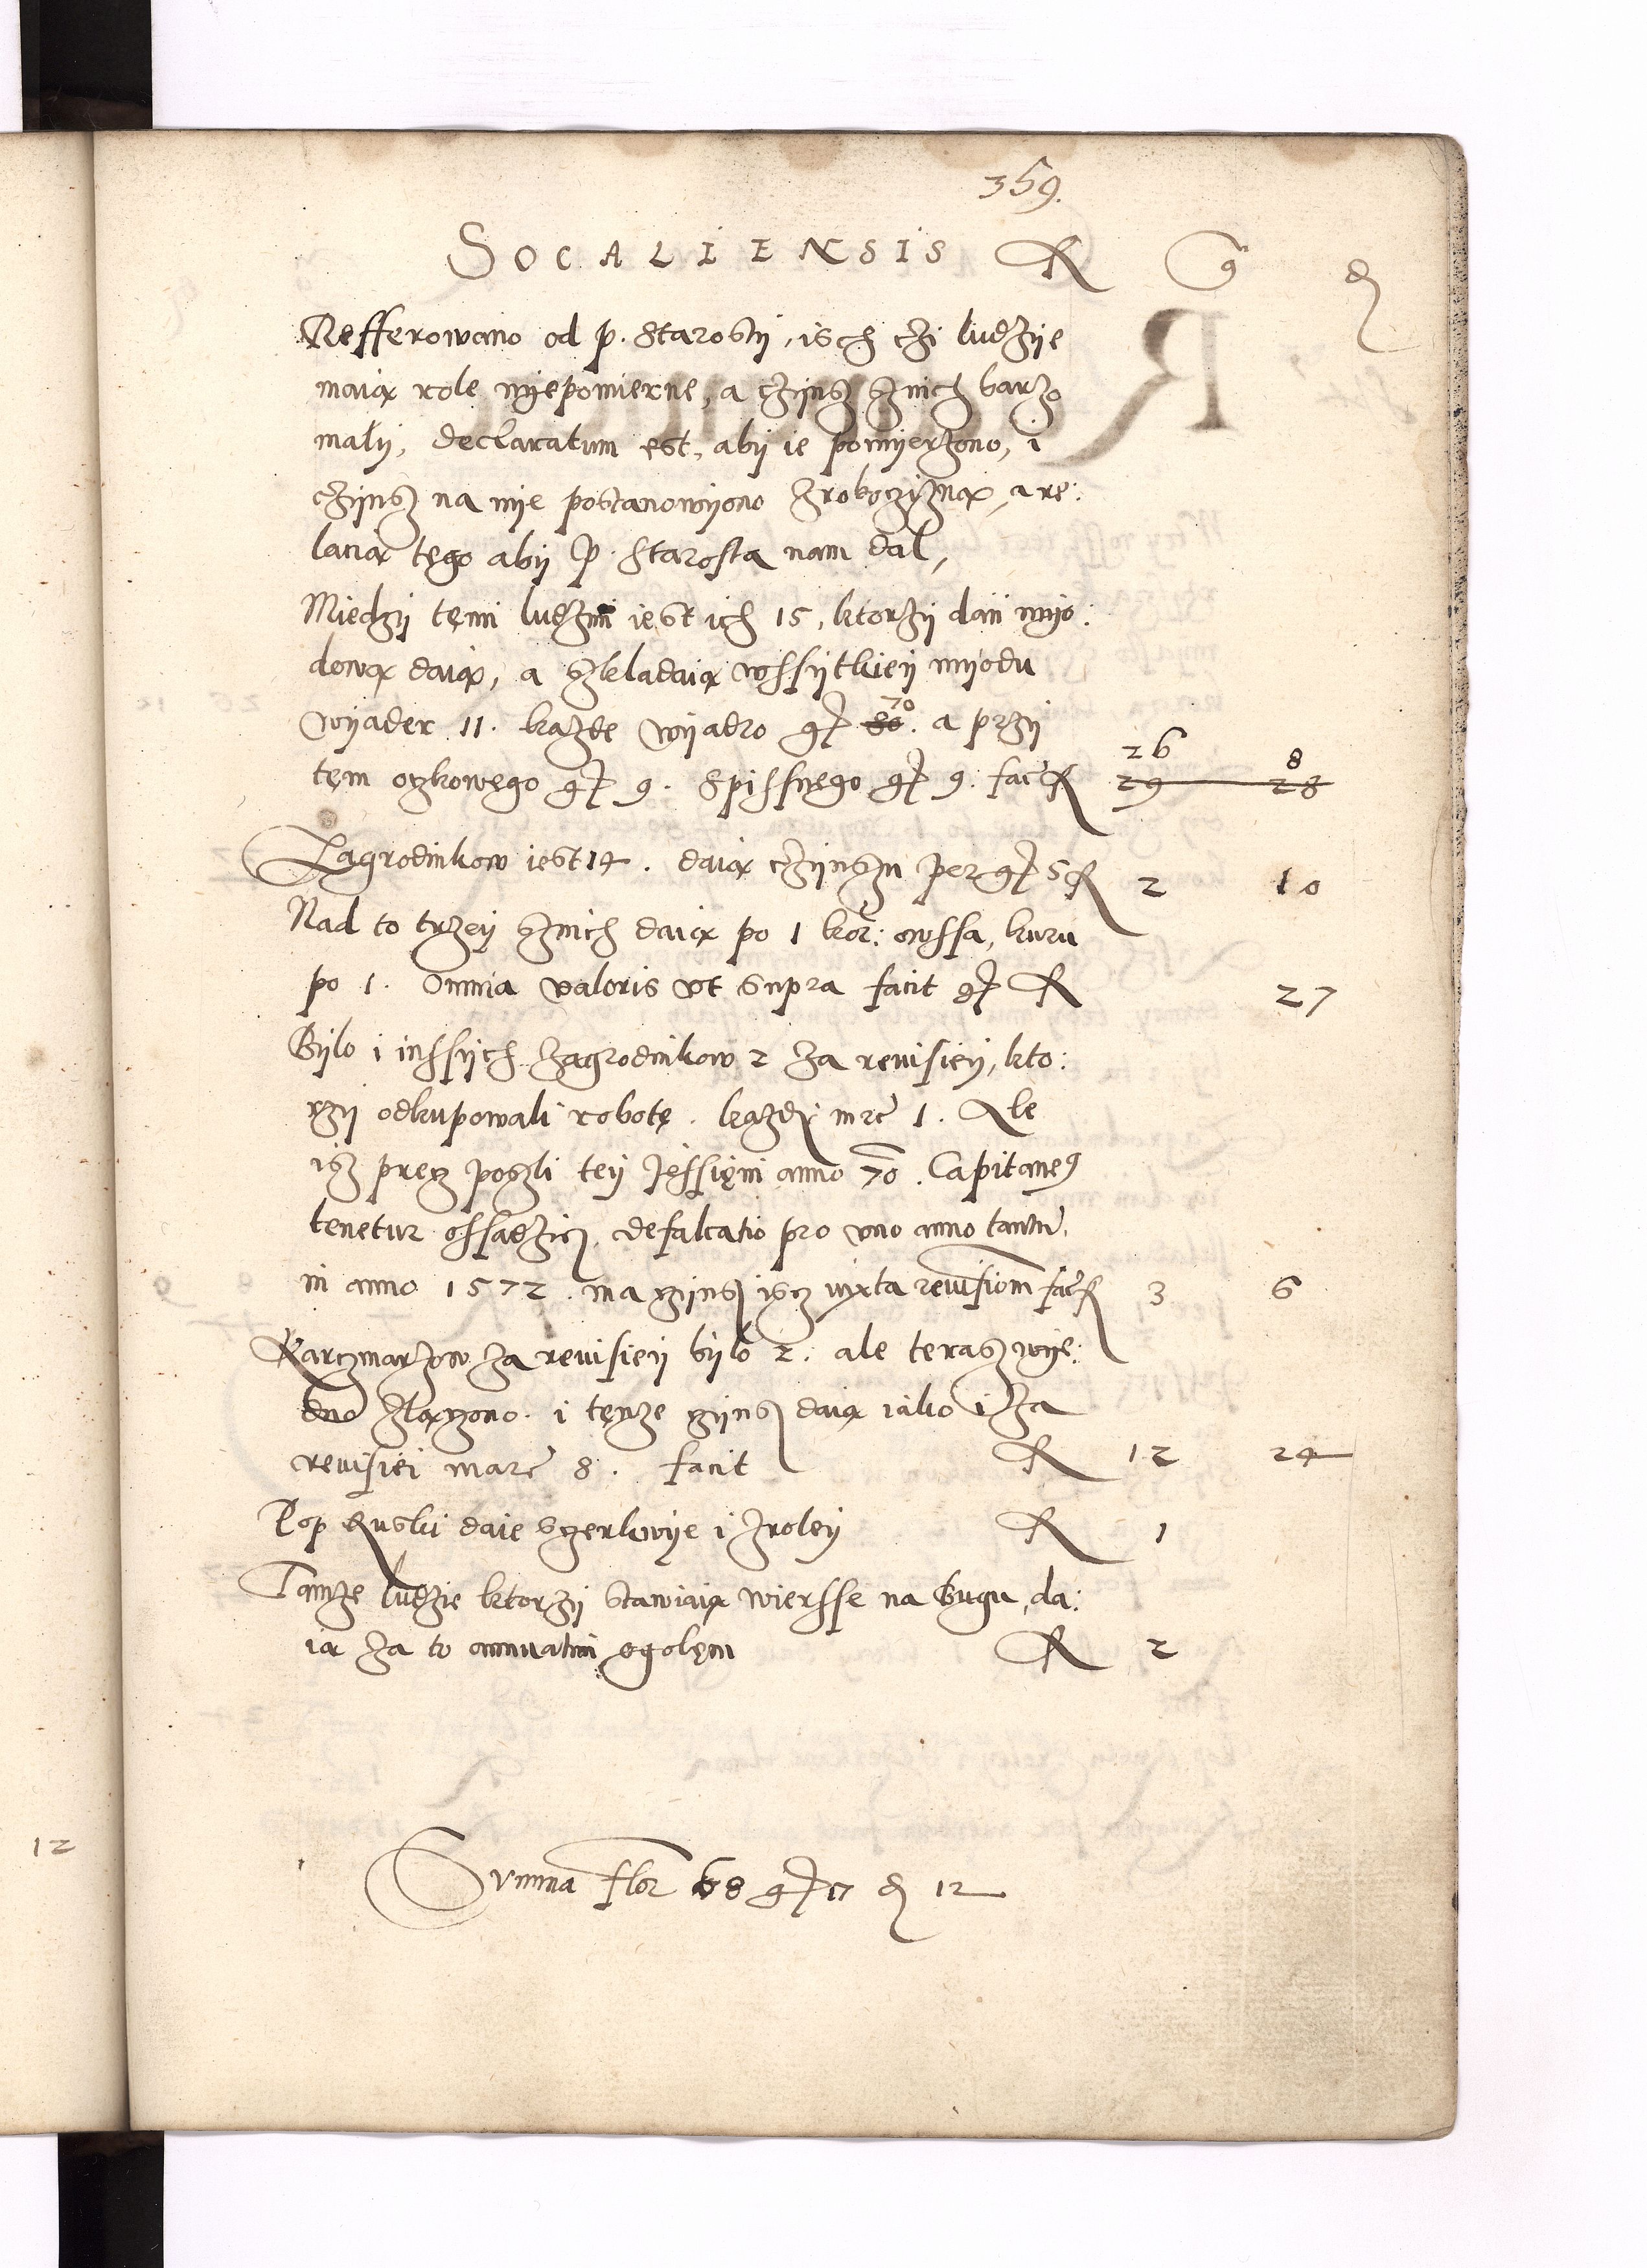 359.
SOCALIENSIS R g d
Refferowano od p. Starosty, isch czi ludzije
maią role nyepomierne, a czijnsz sznich barzo
maly, declaratum est, aby ie pomyerzono, i
czijnsz na nye postanowyono Zroboczizną, a re:
latią tego aby P. Starosta nam dal,
Miedzy temi ludzmi iest ich 15, ktorzy dań myo:
dową daią, a szkladaią wssytkiey myodu
wyader 11. kazde wyadro gr 80. 70 a przy
tem oczkowego gr 9. Spissnego gr 9. fac R 29 28 26 8
Zagrodnikow iest 14. daią czijnszu per gr 5 R 2 10
Nad to trzey sznich daią po 1 kor: owssa, kuru
po 1. Omnia valoris vt supra facit gr R 27
Bylo i inssych Zagrodnikow 2 Za reuisiey, kto:
rzy odkupowali robotę. kazdy mrc 1. Ale
isz precz poszli tey Jessieni anno 70. Capitaneus
tenetur ossadzicz, defalcatio pro vno anno tantum,
in anno 1572. ma czynsz iscz iuxta reuisionem fac R 3 6
Karczmarzow Za reuisiey bylo 2. ale terasz wye:
dno Zlączono. i tenze czynsz daią iako i Za
reuisiei marc 8. facit R 12 24
Pop Ruski daie szczerkwye i Zroley R 1
Tamze ludzie ktorzy stawiaią wiersse na Bugu, da:
ią Za to annuatim ogolem R 2
Summa flor 68 gr 17 d 12
12